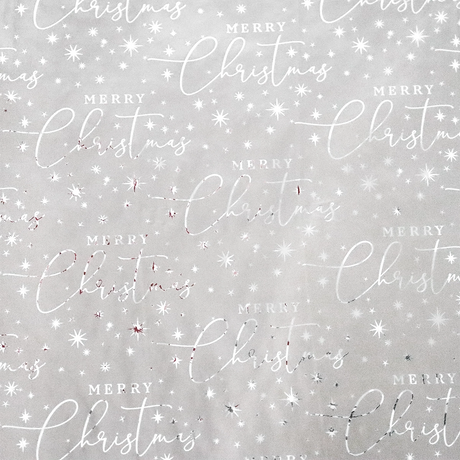 Christmas
Christmas
MERRY
Christmas
MERRY
Christmas
MERRY
Christmas
MERRY
Christmas
MERRY
Christmas
MERRY
Christmas
MERRY
Christmas
MERRY
Christmas
MERRY
Christmas